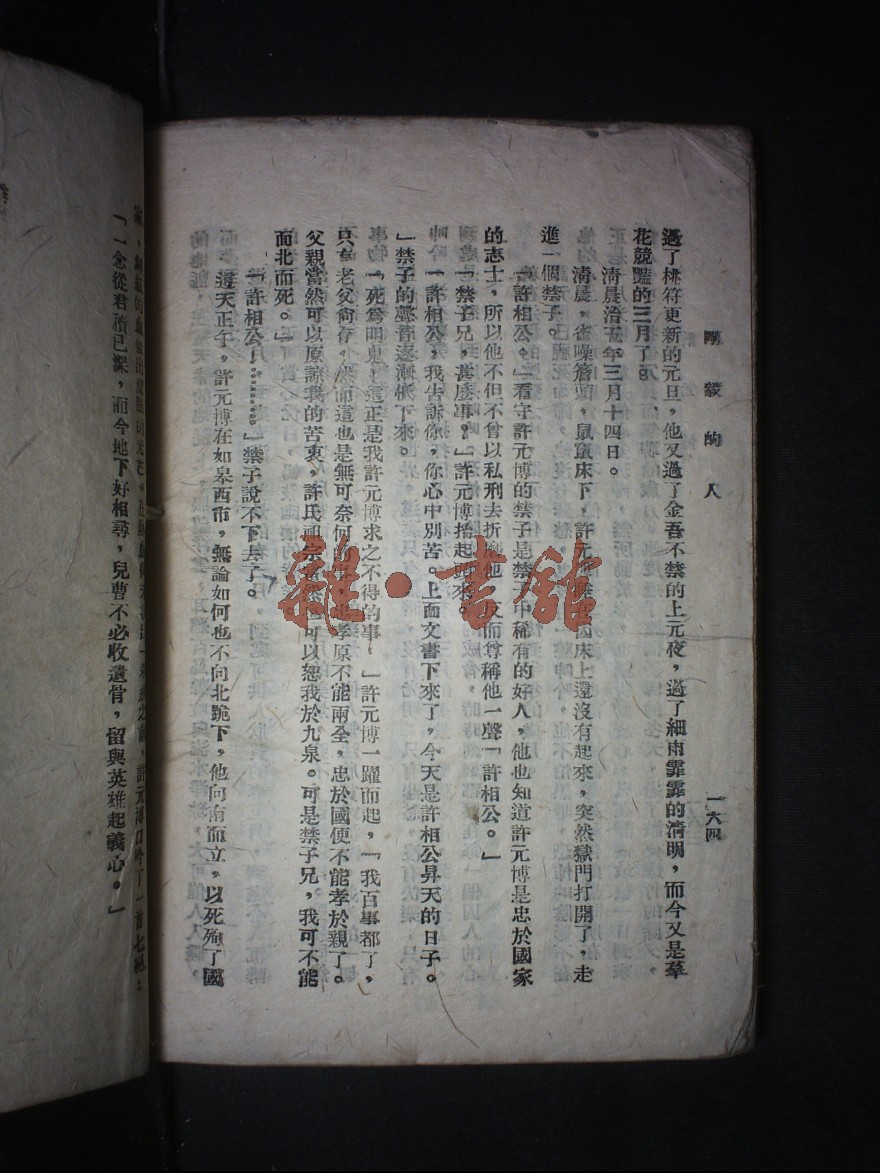 剛毅的人
一六四
過了桃符更新的元旦，他又過了金吾不禁的上元夜，過了細雨霏霏的清明，而今又是羣
花競豔的三月了。
清晨治五年三月十四日。
清晨，雀噪簷頭，鼠竄床下，許元博睡在囚床上還沒有起來，突然獄門打開了，走
進一個禁子。
「許相公。」看守許元博的禁子是禁子中稀有的好人，他也知道許元博是忠於國家
的志士，所以他不但不曾以私刑去折磨他，反而尊稱他一聲「許相公。」
「禁子兄，甚麼事？」許元博抬起頭來。
「許相公，我告訴你，你心中別苦。上面文書下來了，今天是許相公昇天的日子。
」禁子的聲音逐漸低下來。
「死爲明鬼！這正是我許元博求之不得的事！」許元博一躍而起，「我百事都了，
只有老父尚存，然而這也是無可奈何的事，忠孝原不能兩全，忠於國便不能孝於親了。
父親當然可以原諒我的苦衷，許氏祖宗當然也可以恕我於九泉。可是禁子兄，我可不能
面北而死。」
「許相公！………」禁子說不下去了。
這天正午，許元博在如皋西市，無論如何也不向北跪下，他向南而立，以死殉了國
許元博口吟了一首七絕：
「一念從君積已深，而今地下好相尋，兒曹不必收遺骨，留與英雄起義心。」
雜·書館